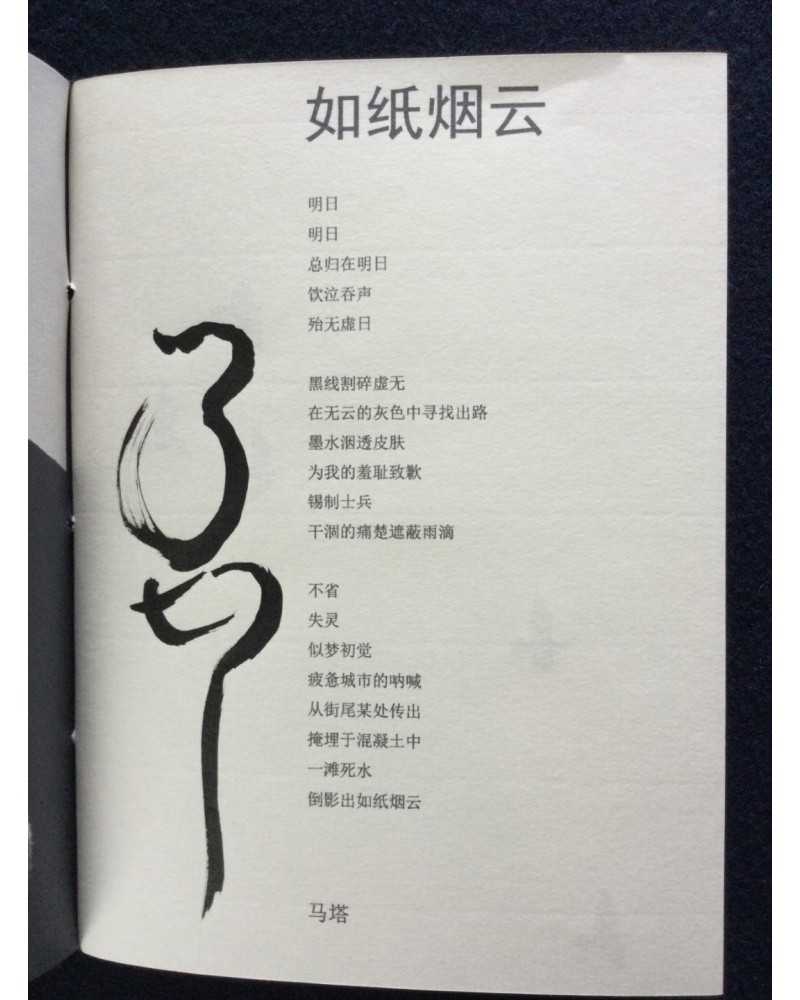 如纸烟云
明日
明日
总归在明日
饮泣吞声
殆无虚日
黑线割碎虚无
在无云的灰色中寻找出路
墨水洇透皮肤
为我的羞耻致歉
锡制士兵
干涸的痛楚遮蔽雨滴
不省
失灵
似梦初觉
疲惫城市的呐喊
从街尾某处传出
掩埋于混凝土中
一滩死水
倒影出如纸烟云
马塔